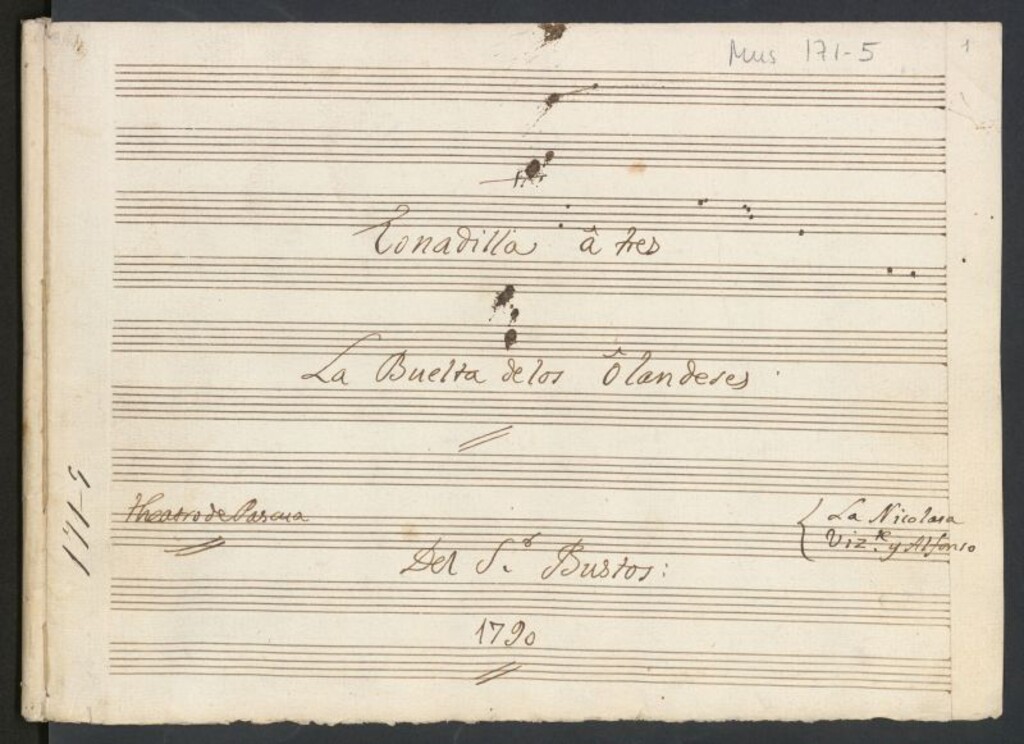 Mus 171-5
1
Tonadilla â tres
La Buelta de los Ôlandeses
171-5
theatro de Pascua
La Nicolasa
Viz.te y Alfonso
Del S.r Bustos:
1790